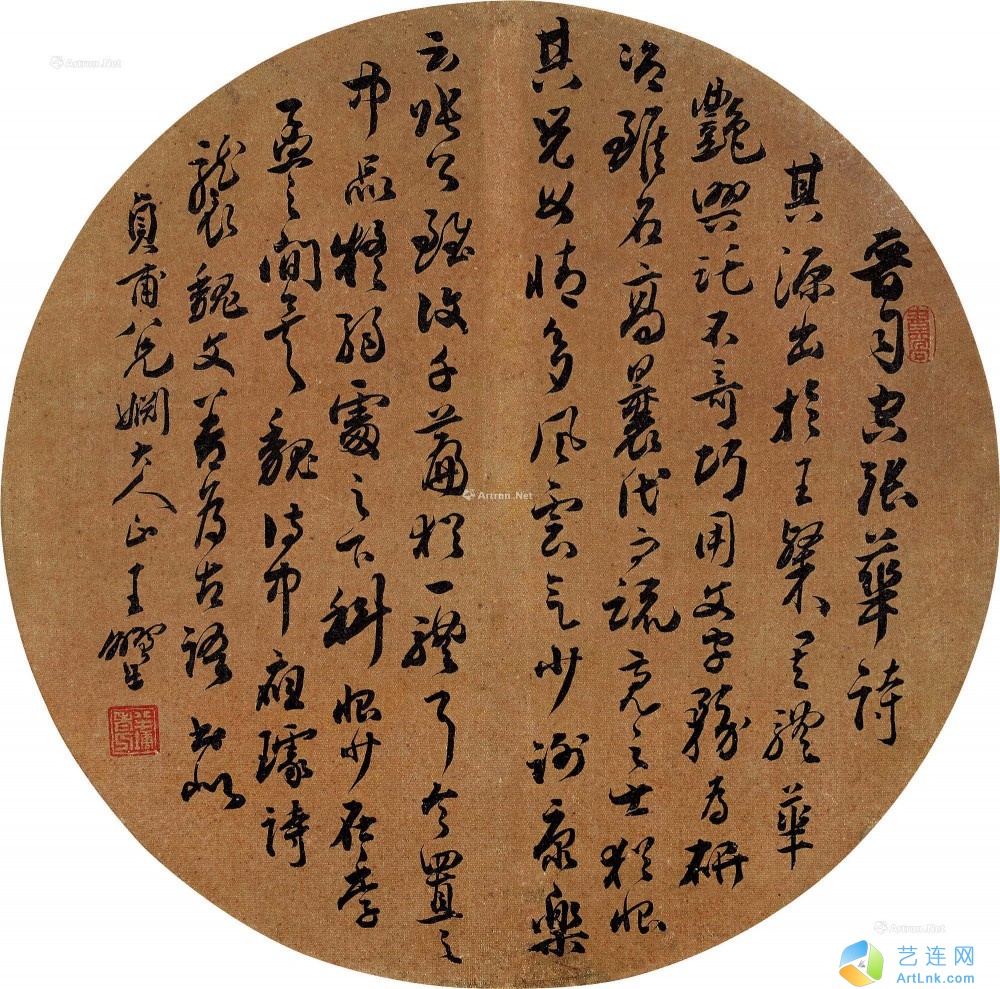 晉司空張華詩
其源出於王粲其體華
艷興託不奇巧用文字務為妍
冶雖名高曩代而疏亮之士猶恨
其兒女情多風雲氣少謝康樂
云張公雖復千篇猶一體耳今置之
中品疑弱處之下科恨少在季
孟之間矣魏侍中應璩詩
襲魏文善為古語書似
貞甫八兄姻大人正 王
Artron.Net
Artron.Net
Artron.Net
艺连网
ArtLnk.com